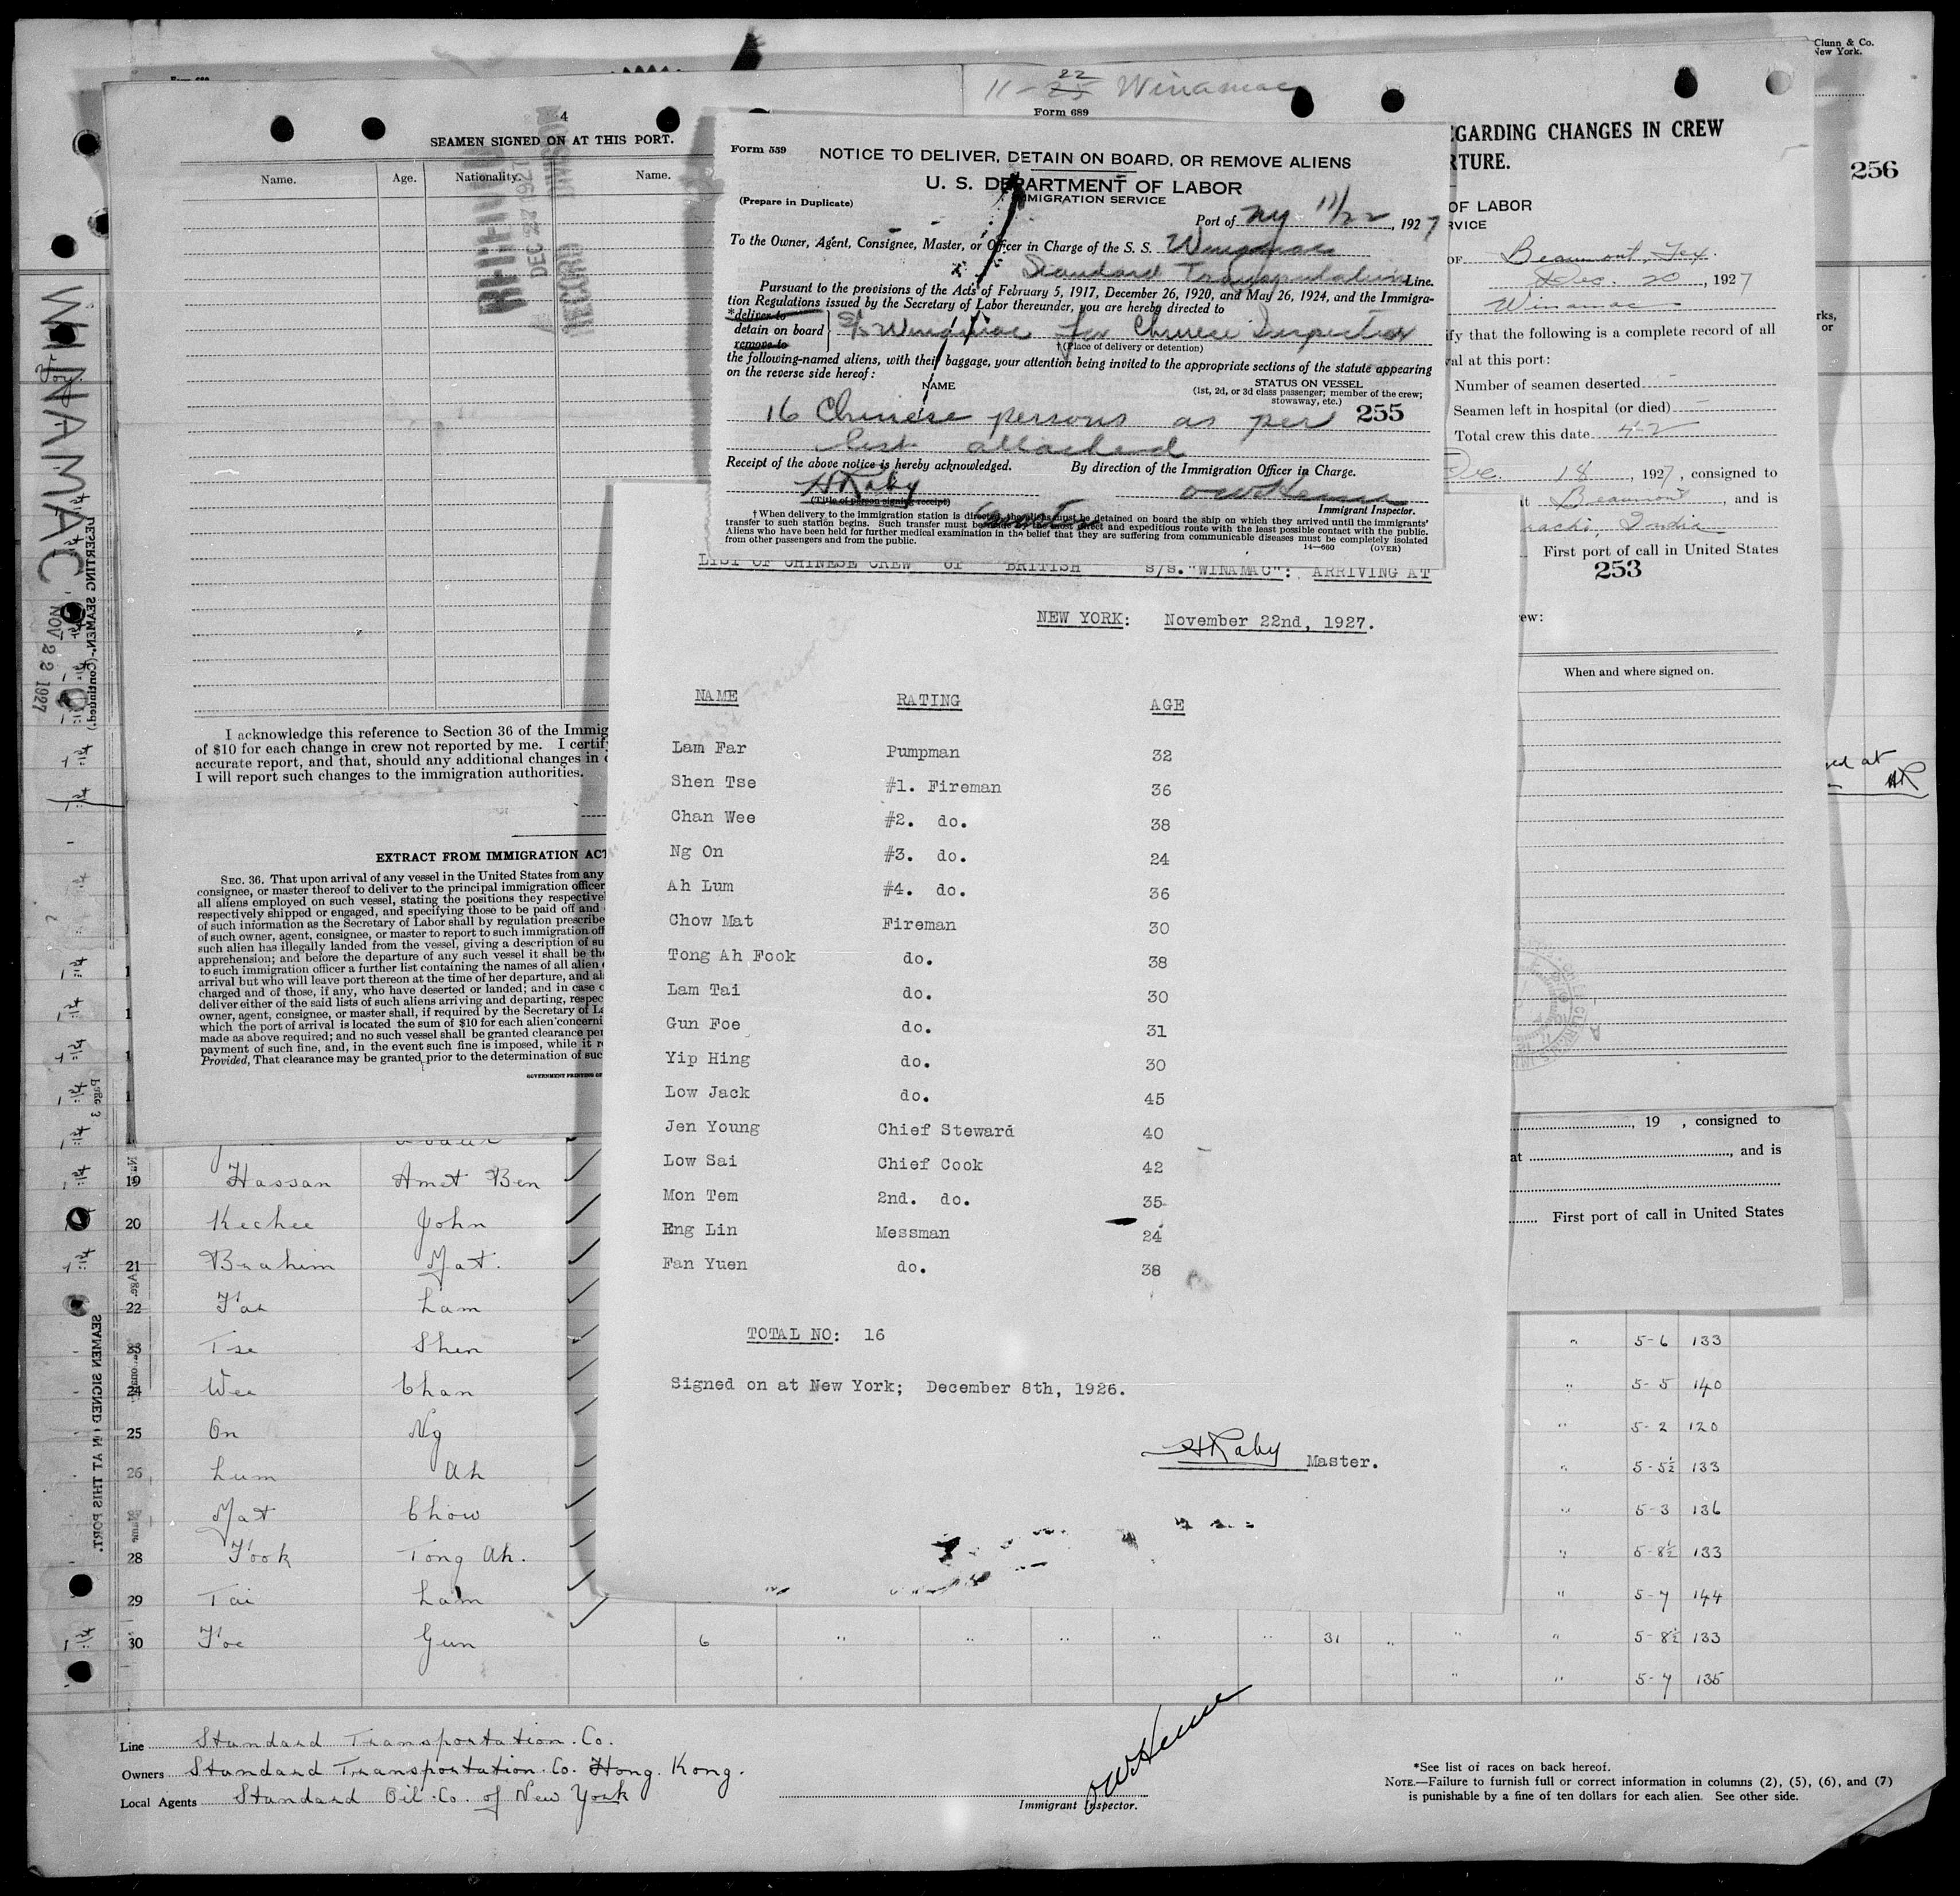 Clunn & Co.
New York.
11-25 22 Winamac
Form 689
4
SEAMEN SIGNED ON AT THIS PORT.
Name. Age. Nationality. Name.
DEC 1927
RECORD DIVISION
WINAMAC
NOV 22 1927
DESERTING SEAMEN—(Continued.)
Page 3
SEAMEN SIGNED ON AT THIS PORT.
I acknowledge this reference to Section 36 of the Immig
of $10 for each change in crew not reported by me. I certif
accurate report, and that, should any additional changes in c
I will report such changes to the immigration authorities.
EXTRACT FROM IMMIGRATION ACT
SEC. 36. That upon arrival of any vessel in the United States from any
consignee, or master thereof to deliver to the principal immigration officer
all aliens employed on such vessel, stating the positions they respective
respectively shipped or engaged, and specifying those to be paid off and
of such information as the Secretary of Labor shall by regulation prescribe
of such owner, agent, consignee, or master to report to such immigration off
such alien has illegally landed from the vessel, giving a description of su
apprehension; and before the departure of any such vessel it shall be the
to such immigration officer a further list containing the names of all alien
arrival but who will leave port thereon at the time of her departure, and al
charged and of those, if any, who have deserted or landed; and in case o
deliver either of the said lists of such aliens arriving and departing, respec
owner, agent, consignee, or master shall, if required by the Secretary of La
which the port of arrival is located the sum of $10 for each alien concerni
made as above required; and no such vessel shall be granted clearance pen
payment of such fine, and, in the event such fine is imposed, while it r
Provided, That clearance may be granted prior to the determination of suc
GOVERNMENT PRINTING OF
Form 559
NOTICE TO DELIVER, DETAIN ON BOARD, OR REMOVE ALIENS
U. S. DEPARTMENT OF LABOR
IMMIGRATION SERVICE
(Prepare in Duplicate)
Port of NY 11/22, 1927
To the Owner, Agent, Consignee, Master, or Officer in Charge of the S. S. Winamac
Standard Transportation Line.
Pursuant to the provisions of the Acts of February 5, 1917, December 26, 1920, and May 26, 1924, and the Immigra-
tion Regulations issued by the Secretary of Labor thereunder, you are hereby directed to
*deliver to
detain on board S/S Winamac for Chinese Inspector
remove to
†(Place of delivery or detention)
the following-named aliens, with their baggage, your attention being invited to the appropriate sections of the statute appearing
on the reverse side hereof:
NAME
STATUS ON VESSEL
(1st, 2d, or 3d class passenger; member of the crew;
stowaway, etc.)
16 Chinese persons as per 255
list attached
Receipt of the above notice is hereby acknowledged. By direction of the Immigration Officer in Charge.
H Raby
(Title of person signing receipt)
Immigrant Inspector.
† When delivery to the immigration station is directed, the aliens must be detained on board the ship on which they arrived until the immigrants'
transfer to such station begins. Such transfer must be made by the most direct and expeditious route with the least possible contact with the public.
Aliens who have been held for further medical examination in the belief that they are suffering from communicable diseases must be completely isolated
from other passengers and from the public.
14—660 (OVER)
LIST OF CHINESE CREW OF "BRITISH S/S."WINAMAC": ARRIVING AT
NEW YORK: November 22nd, 1927.
NAME RATING AGE
Lam Far Pumpman 32
Shen Tse #1. Fireman 36
Chan Wee #2. do. 38
Ng On #3. do. 24
Ah Lum #4. do. 36
Chow Mat Fireman 30
Tong Ah Fook do. 38
Lam Tai do. 30
Gun Foe do. 31
Yip Hing do. 30
Low Jack do. 45
Jen Young Chief Steward 40
Low Sai Chief Cook 42
Mon Tem 2nd. do. 35
Eng Lin Messman 24
Fan Yuen do. 38
TOTAL NO: 16
Signed on at New York; December 8th, 1926.
H Raby Master.
EGARDING CHANGES IN CREW
RTURE.
256
OF LABOR
RVICE
OF Beaumont, Tex.
Dec. 20, 1927
Winamac
ify that the following is a complete record of all
val at this port:
rks,
or
Number of seamen deserted -
Seamen left in hospital (or died) -
Total crew this date 42
Dec. 18, 1927, consigned to
at Beaumont, and is
India
First port of call in United States
253
ew:
When and where signed on.
ed at
HR
, 19 , consigned to
at , and is
First port of call in United States
19 Hassan Amet Ben
20 Kechee John
21 Brahim Mat.
22 Far Lam
23 Tse Shen " 5-6 133
24 Wee Chan " 5-5 140
25 On Ng " 5-2 120
26 Lum Ah " 5-5½ 133
Mat Chow " 5-3 136
28 Fook Tong Ah. " 5-8½ 133
29 Tai Lam " 5-7 144
30 Foe Gun 6 " " " " " 31 " " " 5-8½ 133
" " 5-7 135
Line Standard Transportation. Co.
Owners Standard Transportation. Co. Hong. Kong.
Local Agents Standard Oil. Co. of New York
Immigrant Inspector.
*See list of races on back hereof.
NOTE.—Failure to furnish full or correct information in columns (2), (5), (6), and (7)
is punishable by a fine of ten dollars for each alien. See other side.